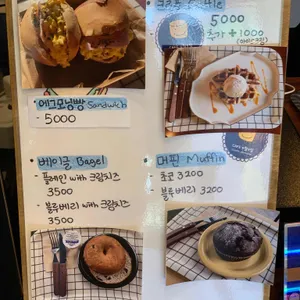 에그모닝빵 Sandwich
- 5000
5000
추가 + 1000
(아이스크림)
· 베이글 Bagel
- 플레인 with 크림치즈
3500
- 블루베리 with 크림치즈
3500
· 머핀 Muffin
- 초코 3200
- 블루베리 3200